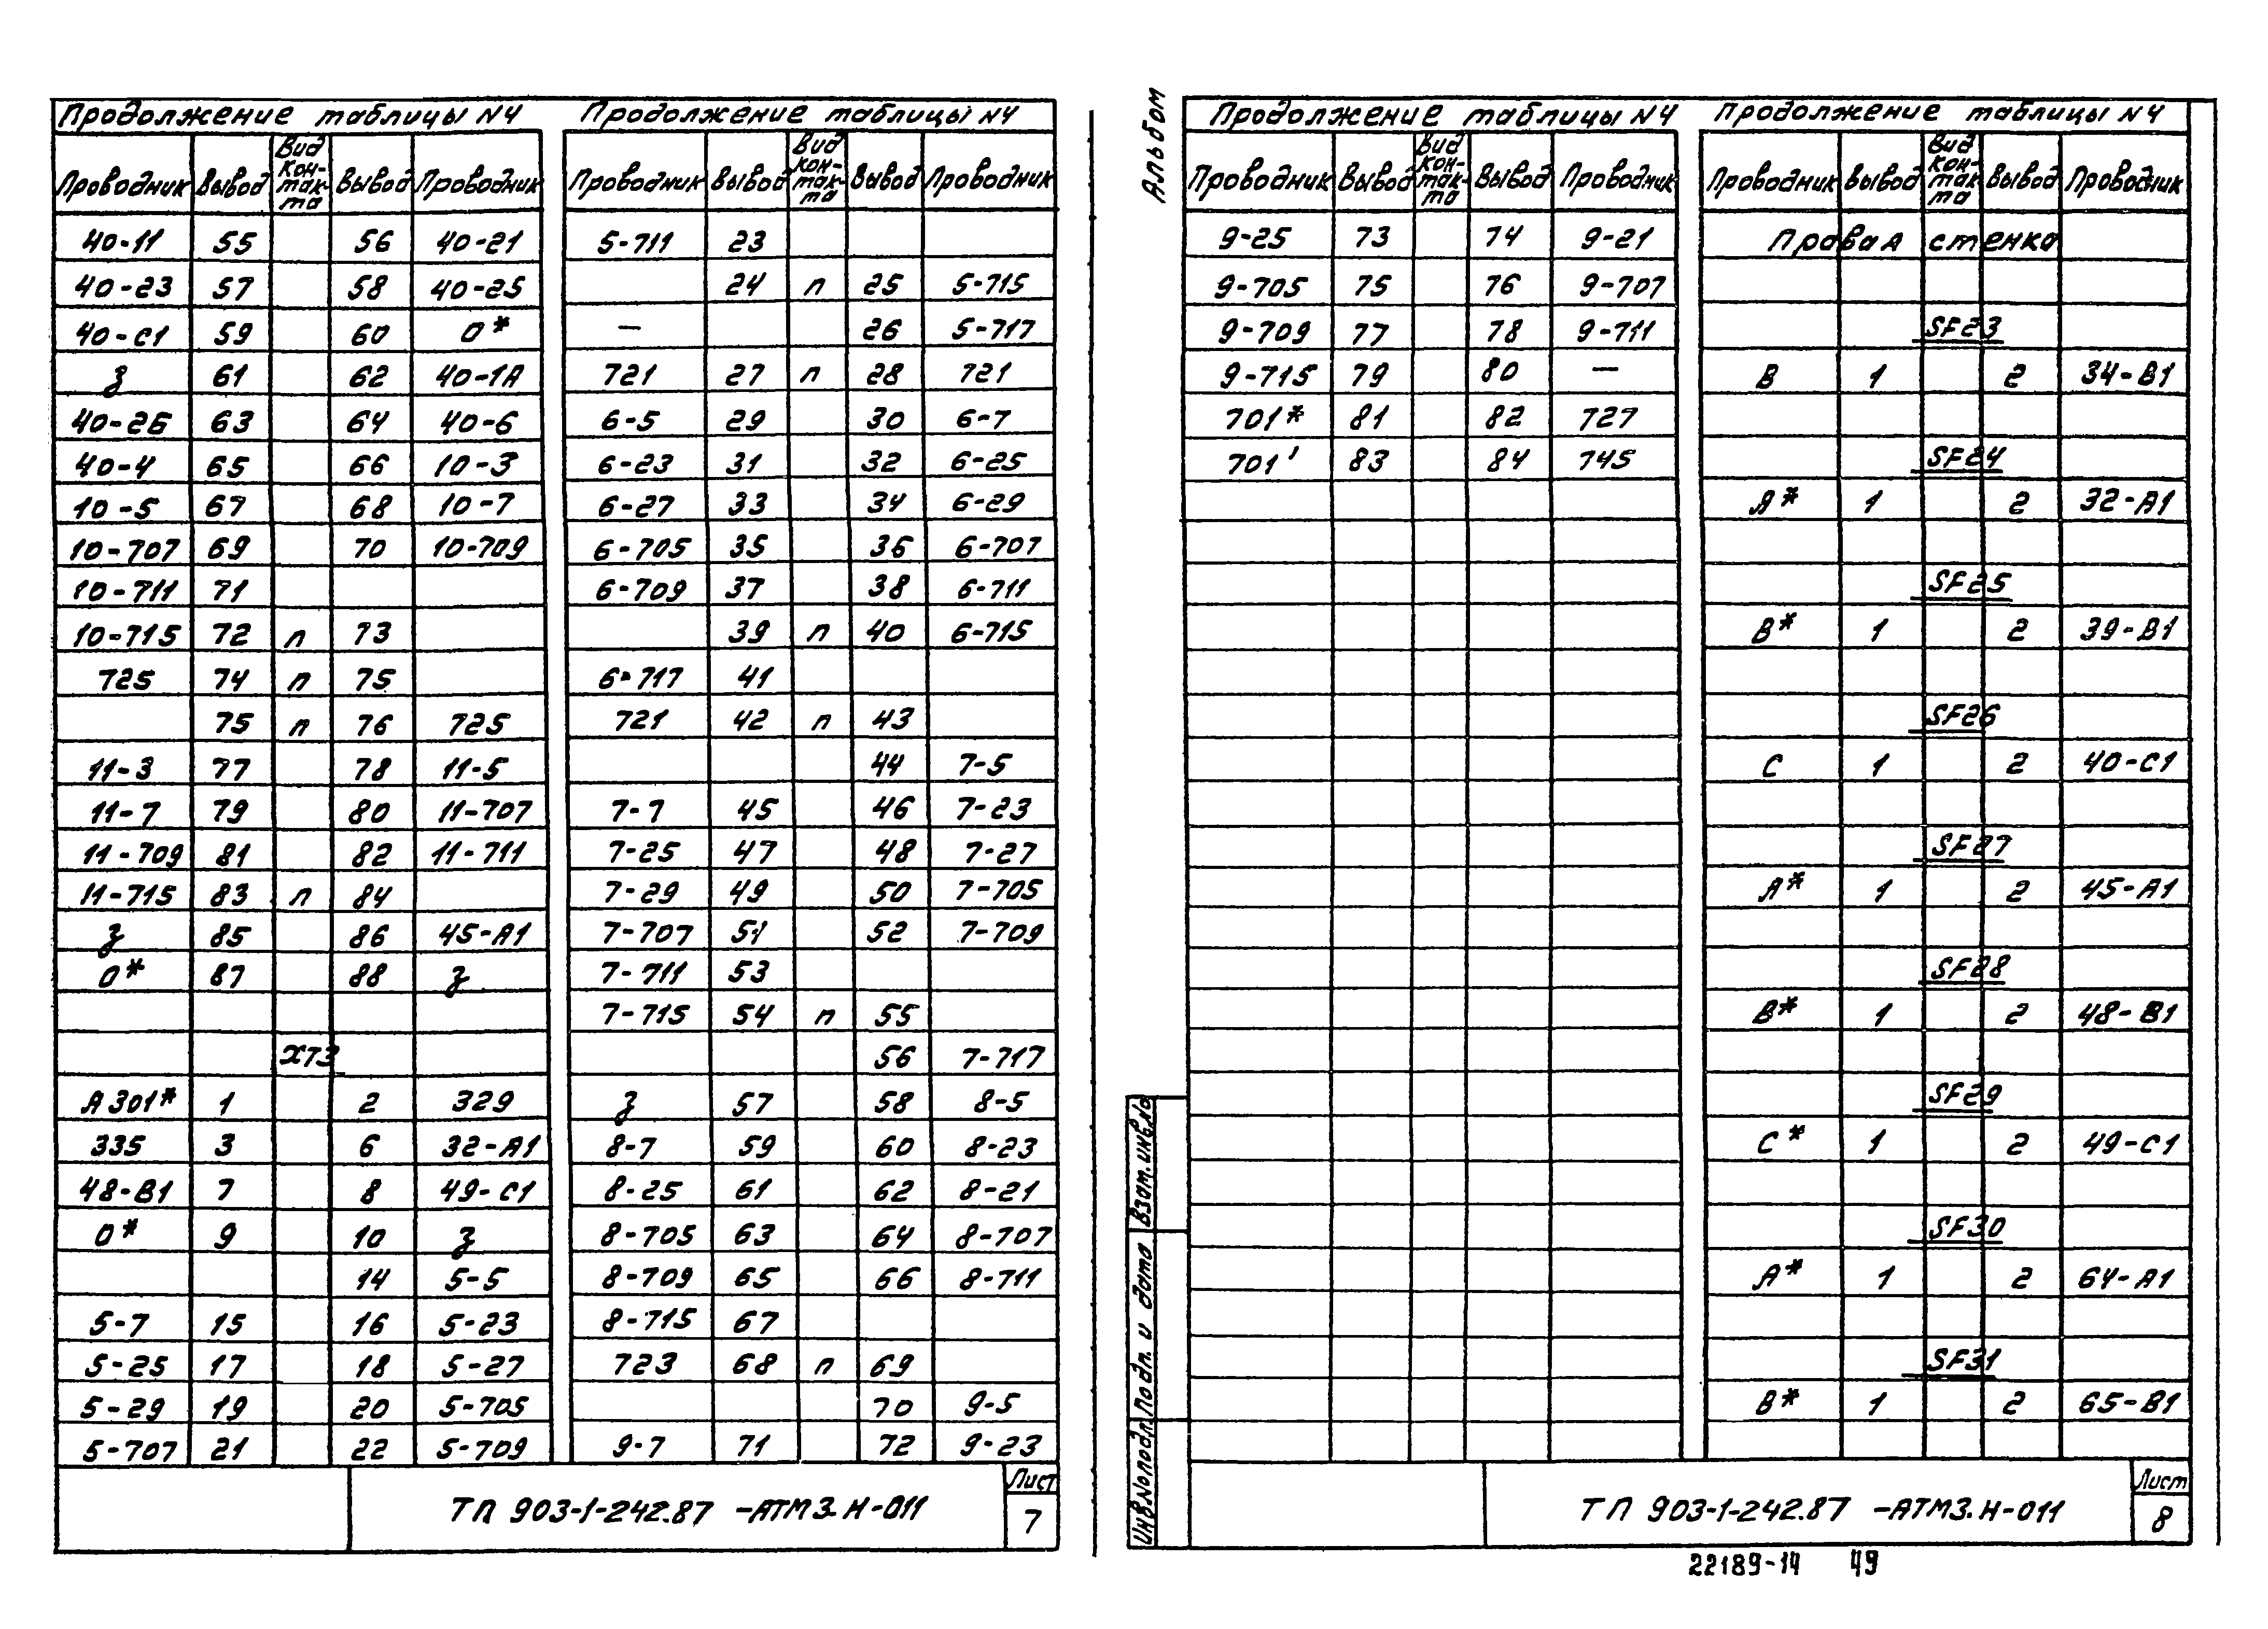 Продолжение таблицы N4
Проводник Вывод Вид кон-так-та Вывод Проводник
40-11 55 56 40-21
40-23 57 58 40-25
40-С1 59 60 0*
З 61 62 40-1А
40-2Б 63 64 40-6
40-4 65 66 10-3
10-5 67 68 10-7
10-707 69 70 10-709
10-711 71
10-715 72 п 73
725 74 п 75
75 п 76 725
11-3 77 78 11-5
11-7 79 80 11-707
11-709 81 82 11-711
11-715 83 п 84
З 85 86 45-А1
0* 87 88 З
ХТ3
А301* 1 2 329
335 3 6 32-А1
48-В1 7 8 49-С1
0* 9 10 З
14 5-5
5-7 15 16 5-23
5-25 17 18 5-27
5-29 19 20 5-705
5-707 21 22 5-709
Продолжение таблицы N4
Проводник Вывод Вид кон-так-та Вывод Проводник
5-711 23
24 п 25 5-715
— 26 5-717
721 27 п 28 721
6-5 29 30 6-7
6-23 31 32 6-25
6-27 33 34 6-29
6-705 35 36 6-707
6-709 37 38 6-711
39 п 40 6-715
6-717 41
721 42 п 43
44 7-5
7-7 45 46 7-23
7-25 47 48 7-27
7-29 49 50 7-705
7-707 51 52 7-709
7-711 53
7-715 54 п 55
56 7-717
З 57 58 8-5
8-7 59 60 8-23
8-25 61 62 8-21
8-705 63 64 8-707
8-709 65 66 8-711
8-715 67
723 68 п 69
70 9-5
9-7 71 72 9-23
ТП 903-1-242.87 -АТМ3.Н-011
Лист
7
Альбом
Продолжение таблицы N4
Проводник Вывод Вид кон-так-та Вывод Проводник
9-25 73 74 9-21
9-705 75 76 9-707
9-709 77 78 9-711
9-715 79 80 —
701* 81 82 727
701' 83 84 745
Продолжение таблицы N4
Проводник Вывод Вид кон-так-та Вывод Проводник
Правая стенка
SF23
В 1 2 34-В1
SF24
А* 1 2 32-А1
SF25
В* 1 2 39-В1
SF26
С 1 2 40-С1
SF27
А* 1 2 45-А1
SF28
В* 1 2 48-В1
SF29
С* 1 2 49-С1
SF30
А* 1 2 64-А1
SF31
В* 1 2 65-В1
Инв.№подл. Подп. и дата Взам.инв.№
ТП 903-1-242.87 -АТМ3.Н-011
Лист
8
22189-14 49